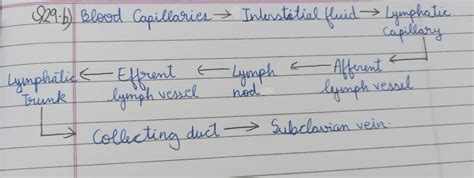 Q29-b) Blood Capillaries → Interstitial fluid → Lymphatic
Capillary
Lymphatic ← Effrent ← Lymph ← Afferent
Trunk lymph vessel nod lymph vessel
Collecting duct → Subclavian vein.